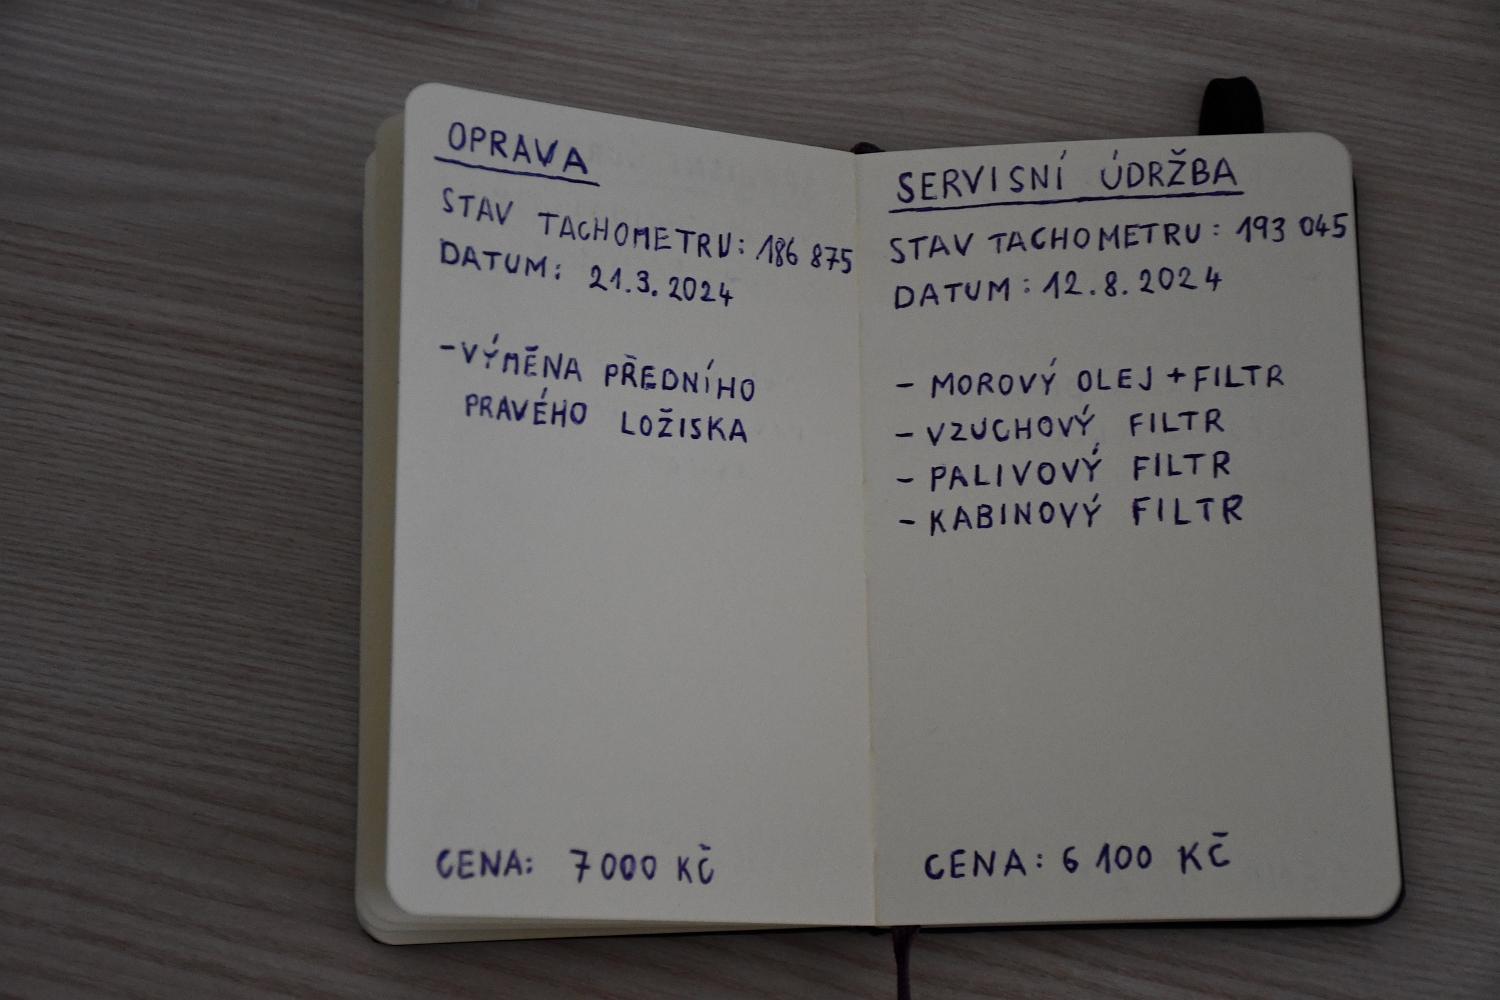 OPRAVA
STAV TACHOMETRU: 186 875
DATUM: 21.3.2024
-VÝMĚNA PŘEDNÍHO
PRAVÉHO LOŽISKA
CENA: 7000 KČ
SERVISNÍ ÚDRŽBA
STAV TACHOMETRU: 193 045
DATUM: 12.8.2024
- MOROVÝ OLEJ + FILTR
- VZUCHOVÝ FILTR
- PALIVOVÝ FILTR
- KABINOVÝ FILTR
CENA: 6 100 KČ